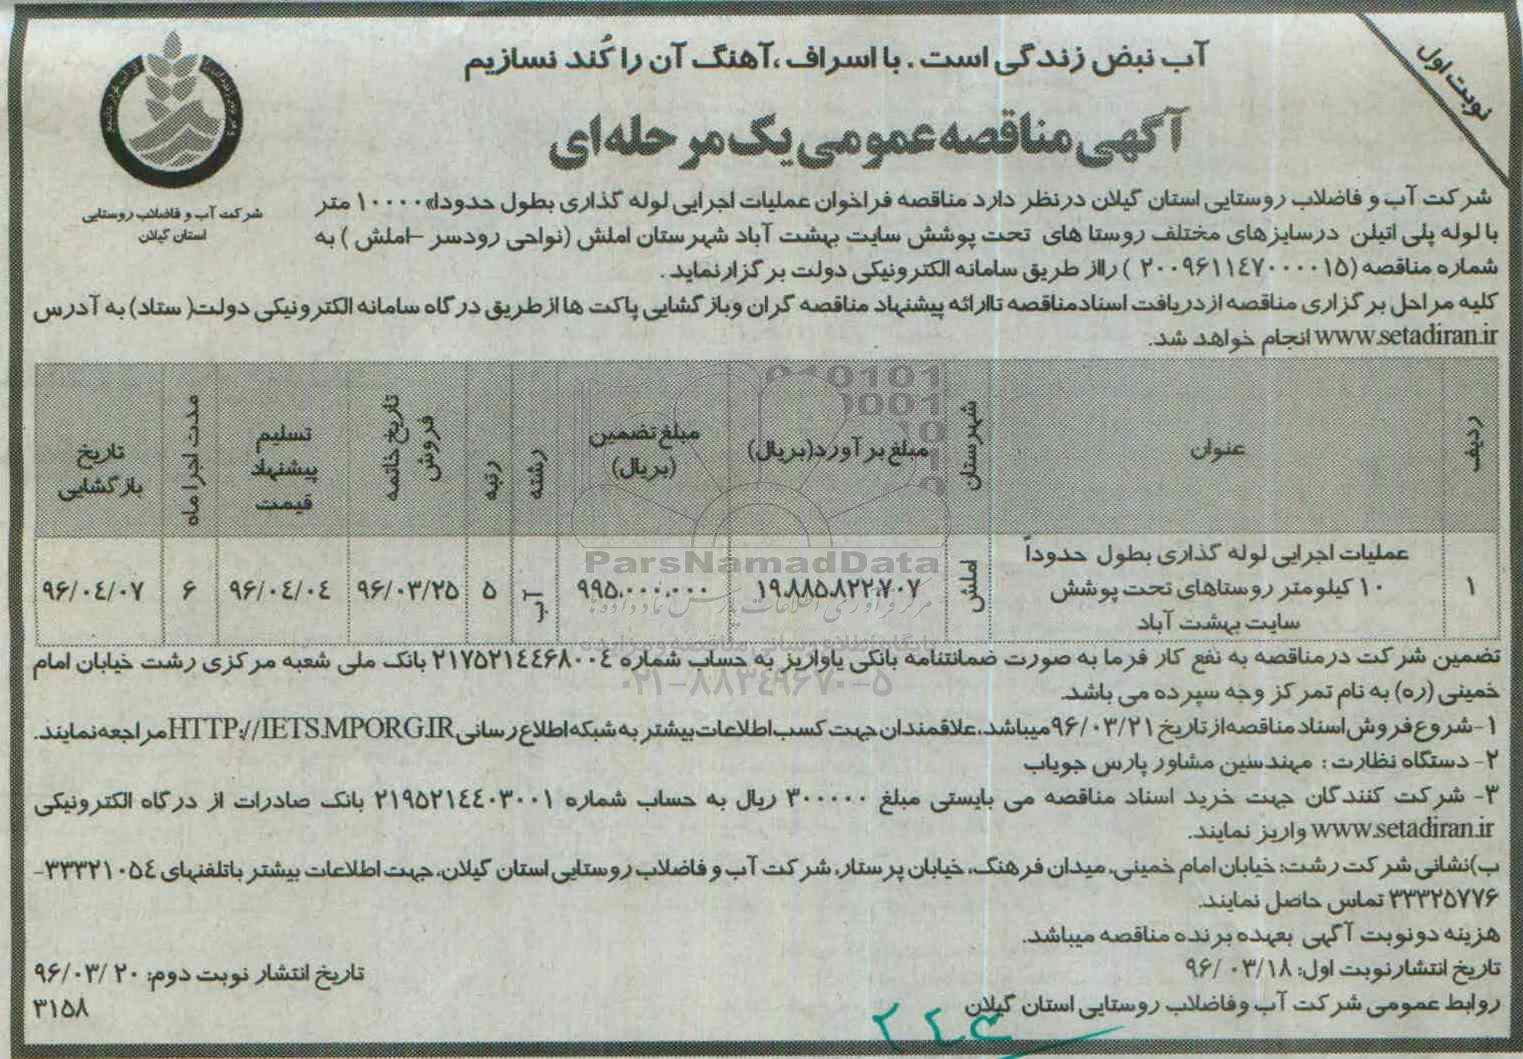 نوبت اول
آب نبض زندگی است . با اسراف ،آهنگ آن را کُند نسازیم
آگهی مناقصه عمومی یک مرحله ای
شرکت آب و فاضلاب روستایی
استان گیلان
شرکت آب و فاضلاب روستایی استان گیلان درنظر دارد مناقصه فراخوان عملیات اجرایی لوله گذاری بطول حدودا» ۱۰۰۰۰ متر
با لوله پلی اتیلن درسایزهای مختلف روستا های تحت پوشش سایت بهشت آباد شهرستان املش (نواحی رودسر –املش ) به
شماره مناقصه (۲۰۰۹۶۱۱۴۷۰۰۰۰۱۵ ) رااز طریق سامانه الکترونیکی دولت برگزارنماید .
کلیه مراحل برگزاری مناقصه ازدریافت اسنادمناقصه تاارائه پیشنهاد مناقصه گران وبازگشایی پاکت ها ازطریق درگاه سامانه الکترونیکی دولت( ستاد) به آدرس
www.setadiran.ir انجام خواهد شد.
ردیف
عنوان
شهرستان
مبلغ برآورد(بریال)
مبلغ تضمین
(بریال)
رشته
رتبه
تاریخ خاتمه
فروش
تسلیم
پیشنهاد
قیمت
مدت اجرا ماه
تاریخ
بازگشایی
۱
عملیات اجرایی لوله گذاری بطول حدوداً
۱۰ کیلومتر روستاهای تحت پوشش
سایت بهشت آباد
املش
۱۹.۸۸۵.۸۲۲.۷۰۷
۹۹۵.۰۰۰.۰۰۰
آب
۵
۹۶/۰۳/۲۵
۹۶/۰۴/۰۴
۶
۹۶/۰۴/۰۷
ParsNamadData
۰۲۱-۸۸۳۴۹۶۷۰-۵
تضمین شرکت درمناقصه به نفع کار فرما به صورت ضمانتنامه بانکی یاواریز به حساب شماره ۲۱۷۵۲۱۴۴۶۸۰۰۴ بانک ملی شعبه مرکزی رشت خیابان امام
خمینی (ره) به نام تمرکز وجه سپرده می باشد.
۱-شروع فروش اسناد مناقصه از تاریخ ۹۶/۰۳/۲۱ میباشد، علاقمندان جهت کسب اطلاعات بیشتر به شبکه اطلاع رسانی HTTP://IETS.MPORG.IR مراجعه نمایند.
۲- دستگاه نظارت : مهندسین مشاور پارس جویاب
۳- شرکت کنندگان جهت خرید اسناد مناقصه می بایستی مبلغ ۳۰۰۰۰۰ ریال به حساب شماره ۲۱۹۵۲۱۴۴۰۳۰۰۱ بانک صادرات از درگاه الکترونیکی
www.setadiran.ir واریز نمایند.
ب)نشانی شرکت رشت: خیابان امام خمینی، میدان فرهنگ، خیابان پرستار، شرکت آب و فاضلاب روستایی استان گیلان، جهت اطلاعات بیشتر باتلفنهای ۳۳۳۲۱۰۵۴-
۳۳۳۲۵۷۷۶ تماس حاصل نمایند.
هزینه دونوبت آگهی بعهده برنده مناقصه میباشد.
تاریخ انتشارنوبت اول: ۹۶/۰۳/۱۸
تاریخ انتشار نوبت دوم: ۹۶/۰۳/۲۰
روابط عمومی شرکت آب وفاضلاب روستایی استان گیلان
۳۱۵۸